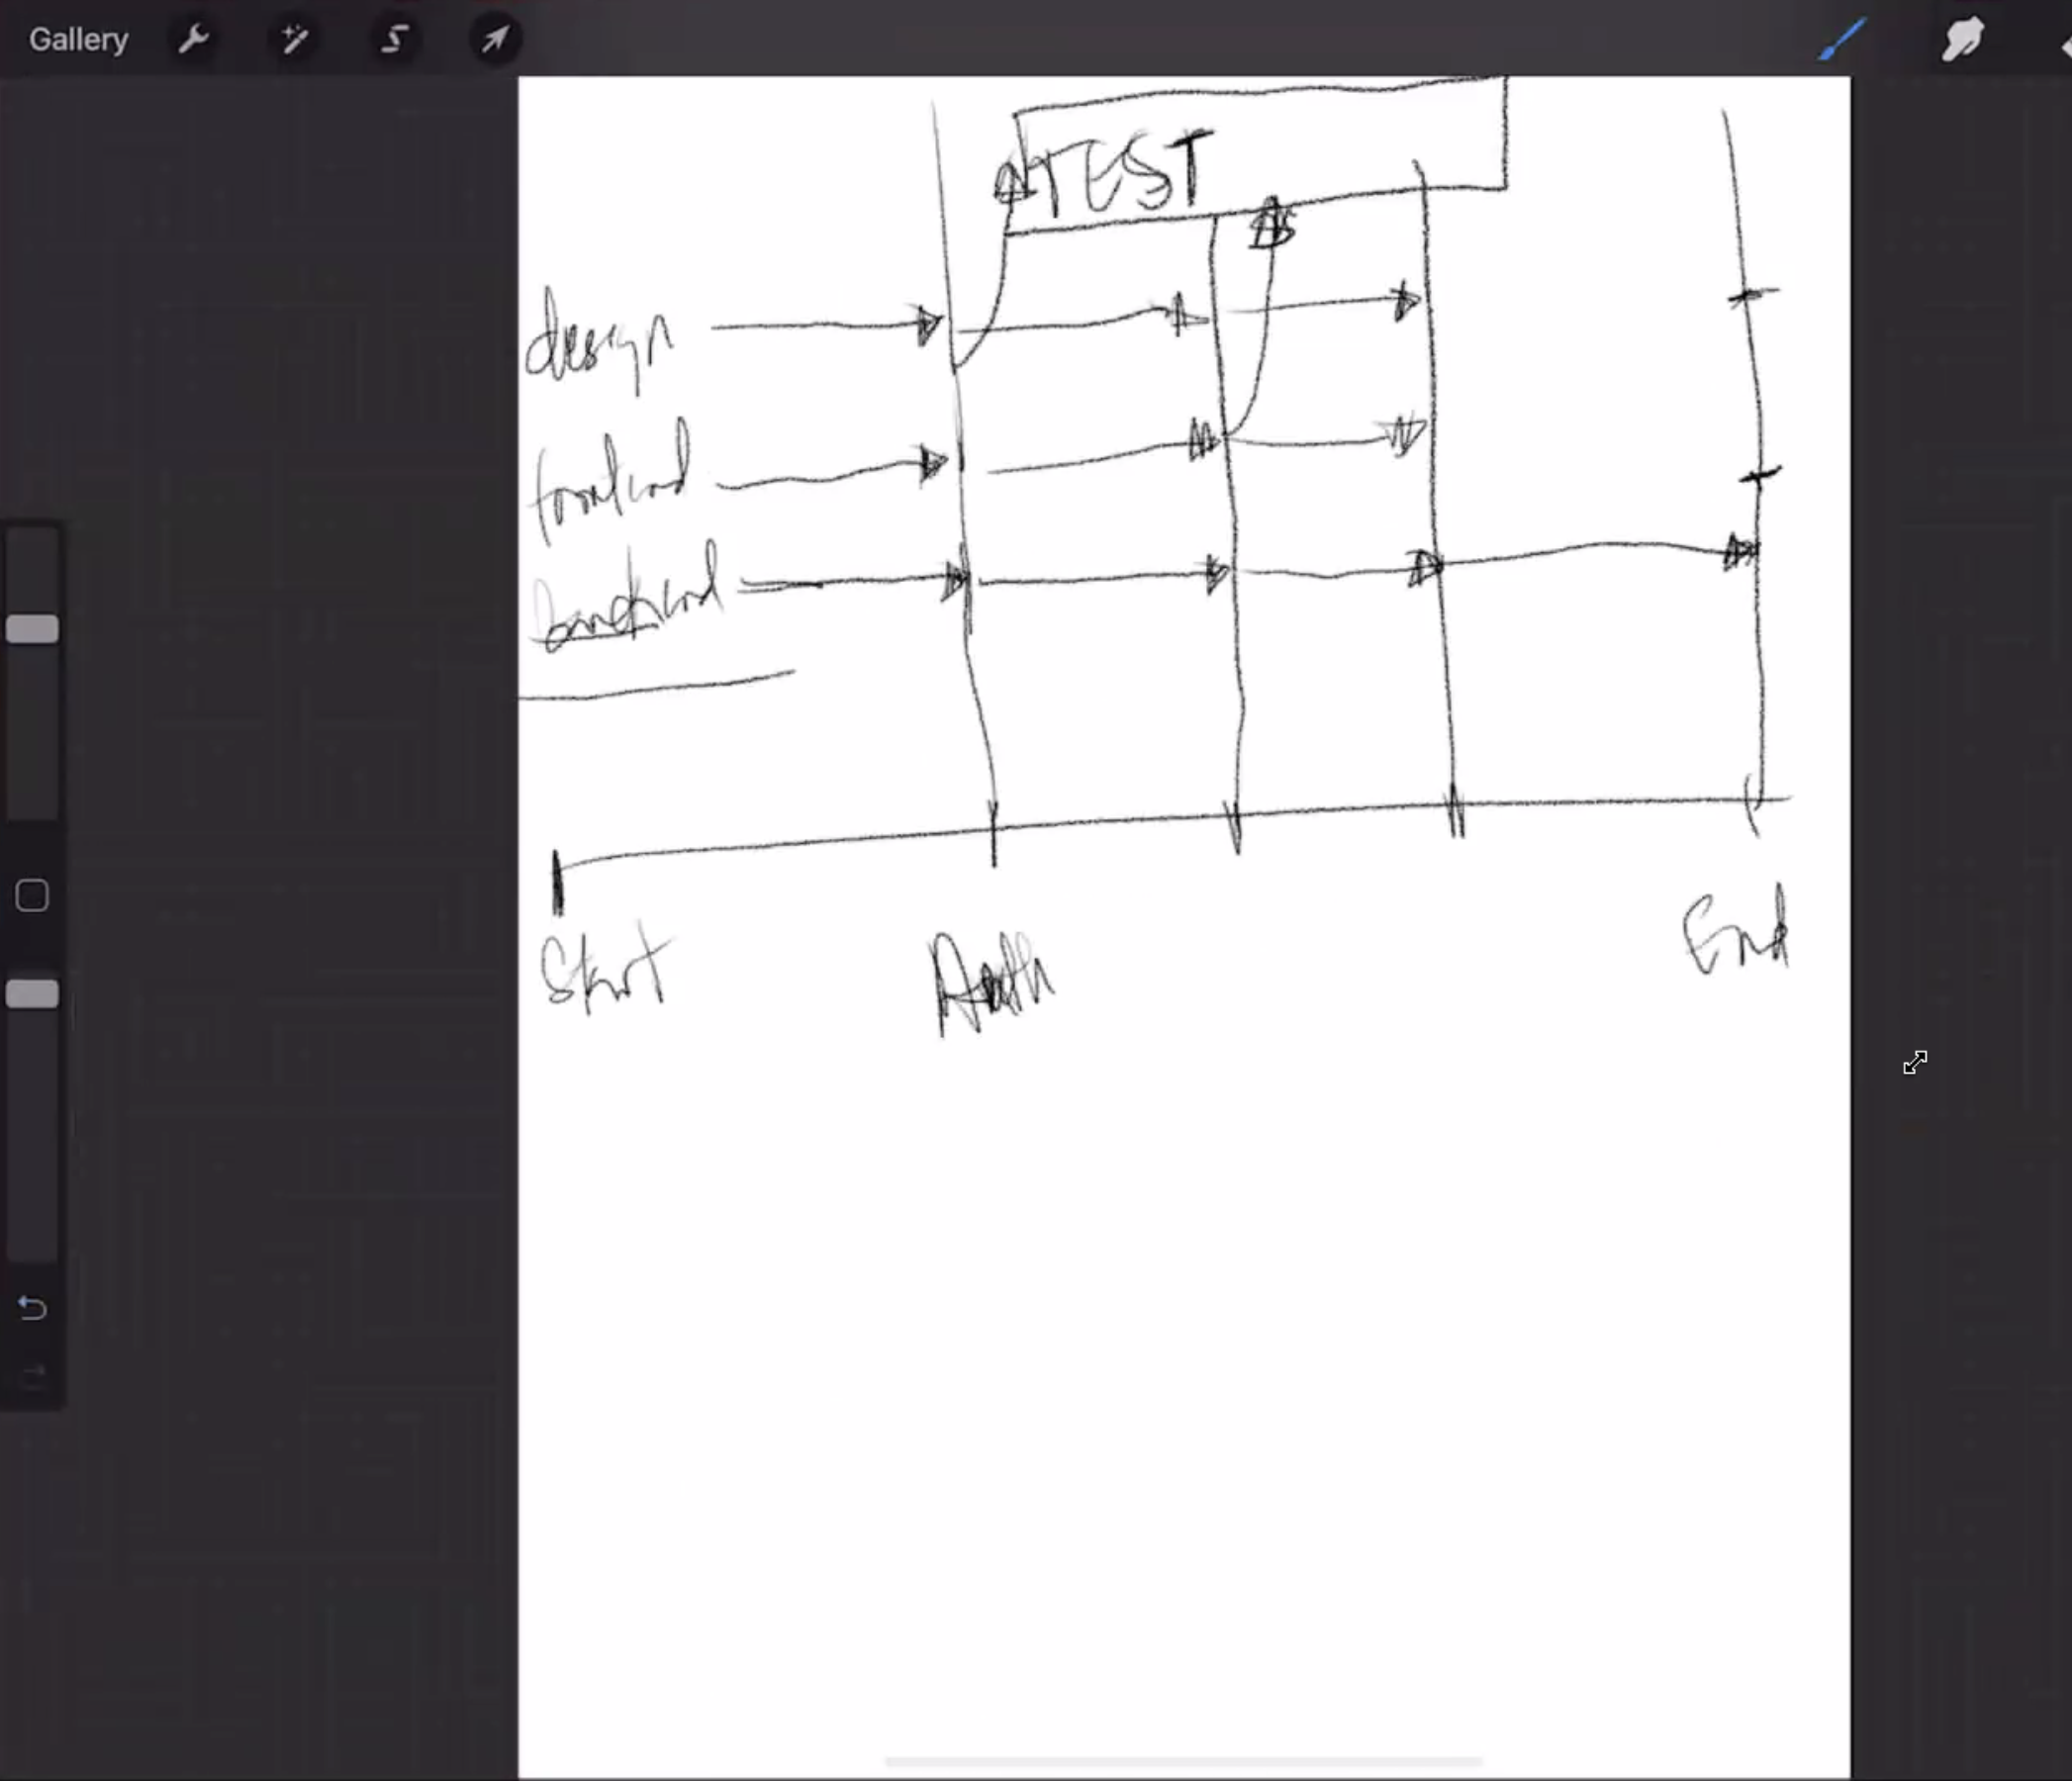 Gallery
TEST
design
frontend
backend
Start
Auth
End